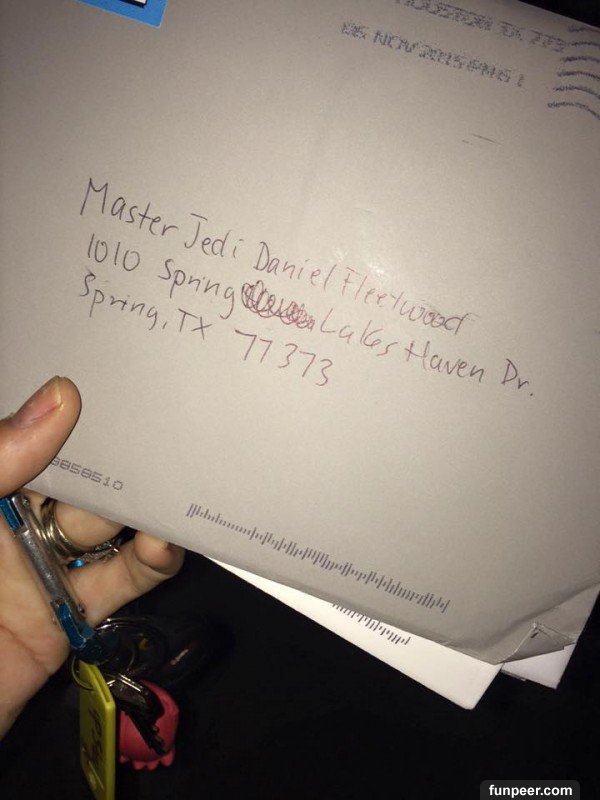 HOUSTON TX 773
06 NOV 2015 PM 6 L
Master Jedi Daniel Fleetwood
1010 Spring Lakes Haven Dr.
Spring, TX 77373
9858510
funpeer.com